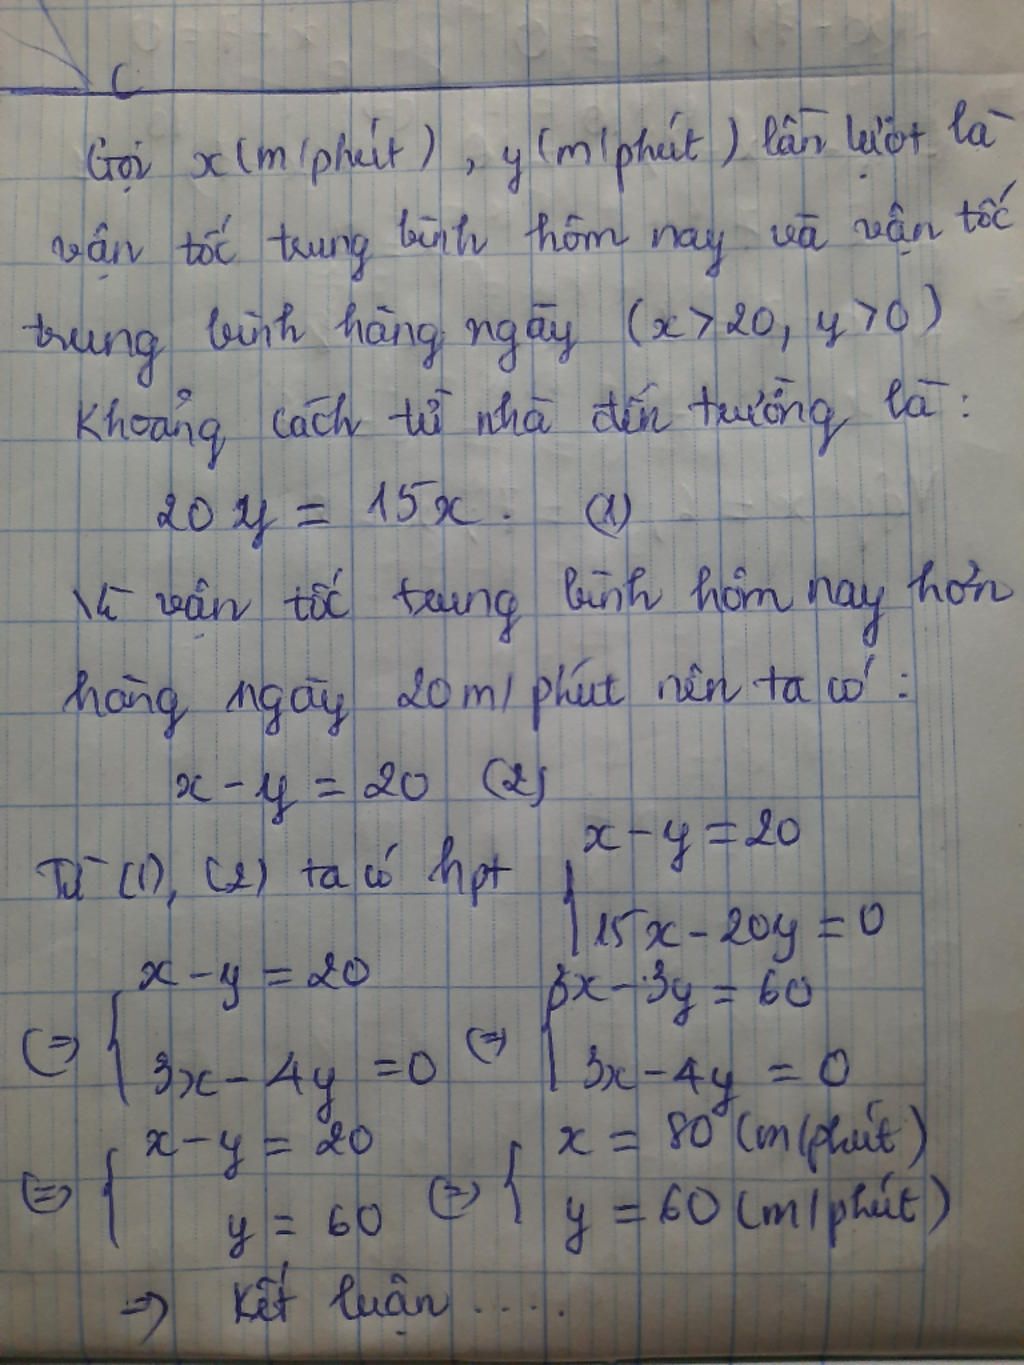 C
Gọi x(m/phút), y(m/phút) lần lượt là
vận tốc trung bình hôm nay và vận tốc
trung bình hàng ngày (x>20, y>0)
Khoảng cách từ nhà đến trường là:
20y = 15x. (1)
Vì vận tốc trung bình hôm nay hơn
hàng ngày 20m/phút nên ta có:
x-y = 20 (2)
Từ (1), (2) ta có hpt { x-y=20
15x-20y=0
(=) { x-y=20 (=) { 3x-3y=60
3x-4y=0 3x-4y=0
(=) { x-y=20 (=) { x=80 (m/phút)
y=60 y=60 (m/phút)
=> Kết luận.....